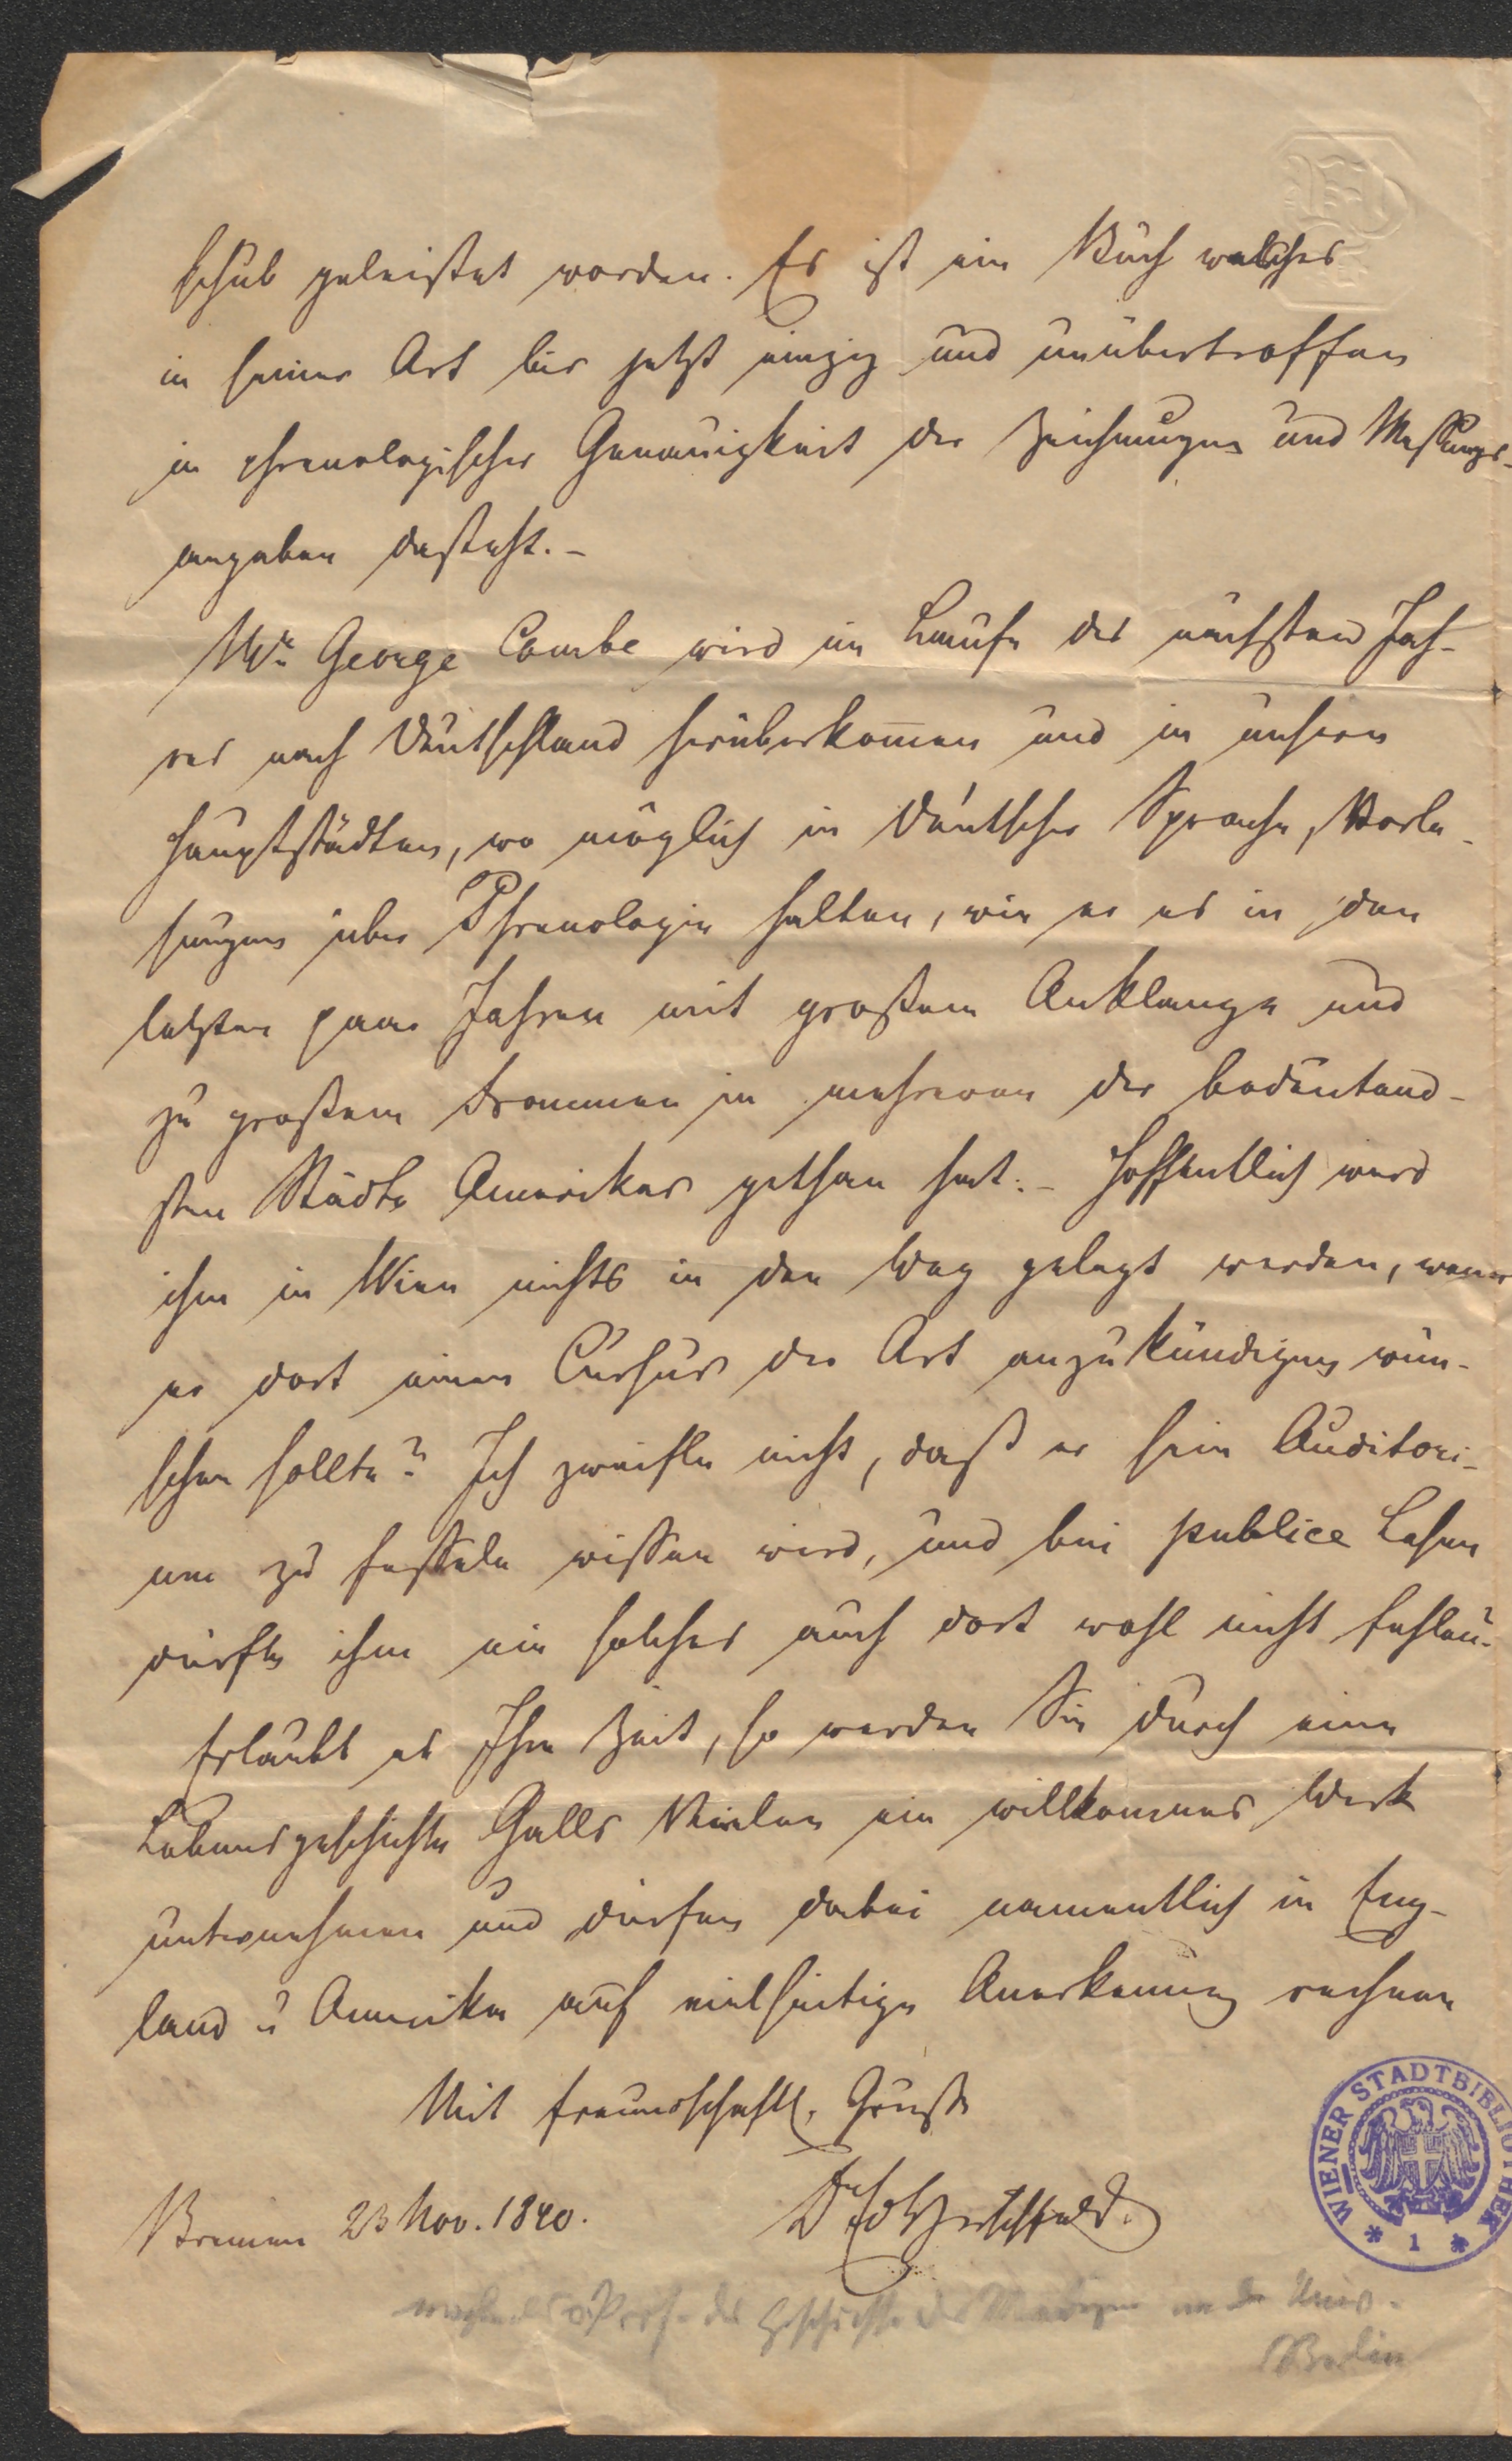 schub geleistet worden. Es ist ein Buch welches
in seiner Art bis jetzt einzig und unübertroffen
in phrenologischer Genauigkeit der Zeichnungen und Messungs-
angaben dasteht. –
Mr. George Combe wird im Laufe des nächsten Jah-
res nach Deutschland herüberkom̅en und in unsern
Hauptstädten, wo möglich in deutscher Sprache, Vorle-
sungen über Phrenologie halten, wie er es in den
letzten paar Jahren mit großem Anklange und
zu großem Frommen in mehreren der bedeutend-
sten Städte Amerikas gethan hat. – Hoffentlich wird
ihm in Wien nichts in den Weg gelegt werden, wenn
er dort einen Cursus der Art anzukündigen wün-
schen sollte? Ich zweifle nicht, daß er sein Auditori-
um zu fesseln wissen wird, und bei publice Lesen
dürfte ihm ein solches auch dort wohl nicht fehlen.
Erlaubt es Ihre Zeit, so werden Sie durch eine
Lebensgeschichte Galls Vielen ein willkommnes Werk
unternehmen und dürfen dabei namentlich in Eng-
land u Amerika auf vielseitige Anerkennung rechnen
Mit freundschaftl. Gruße
Bremen 23 Nov. 1840.
Dr Ed Hirschfeld.
Prof. der Geschichte der Medizin an der Univ.
Berlin
WIENER STADTBIBLIOTHEK
* 1 *